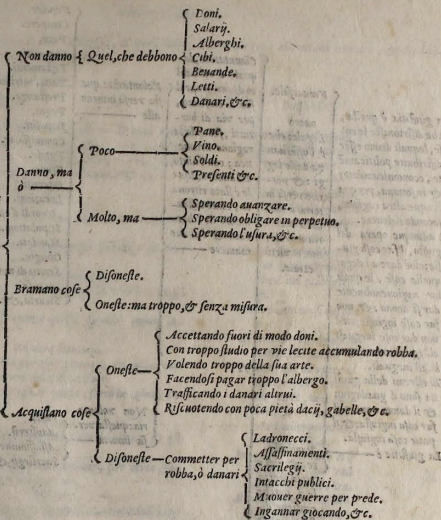 Non danno
Quel, che debbono
Doni.
Salarij.
Alberghi.
Cibi.
Beuande.
Letti.
Danari, &c.
Danno, ma
ò
Poco
Pane.
Vino.
Soldi.
Presenti &c.
Molto, ma
Sperando auanzare.
Sperando obligare in perpetuo.
Sperando l'usura, &c.
Bramano cose
Disoneste.
Oneste: ma troppo, & senza misura.
Acquistano cose
Oneste
Accettando fuori di modo doni.
Con troppo studio per vie lecite accumulando robba.
Volendo troppo della sua arte.
Facendosi pagar troppo l'albergo.
Trafficando i danari altrui.
Riscuotendo con poca pietà dacij, gabelle, &c.
Disoneste
Commetter per
robba, ò danari
Ladronecci.
Assassinamenti.
Sacrilegij.
Intacchi publici.
Muouer guerre per prede.
Ingannar giocando, &c.